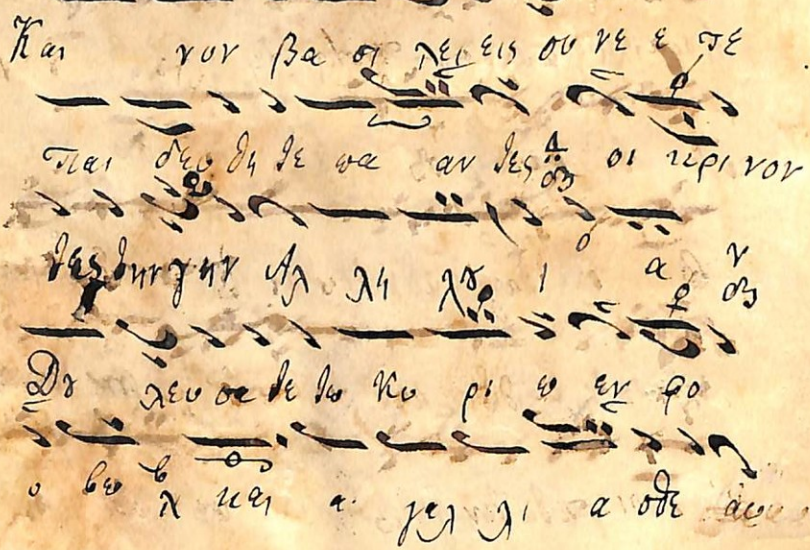 Και νυν βα σι λει εις συ νε ε τε
παι δευ θη τε πα αν τες οι κρι νον
τες την γην Αλ λη λου ι α
Δου λευ σα τε τω Κυ ρι ω εν φο
ο βω και α γαλ λι α σθε αυ